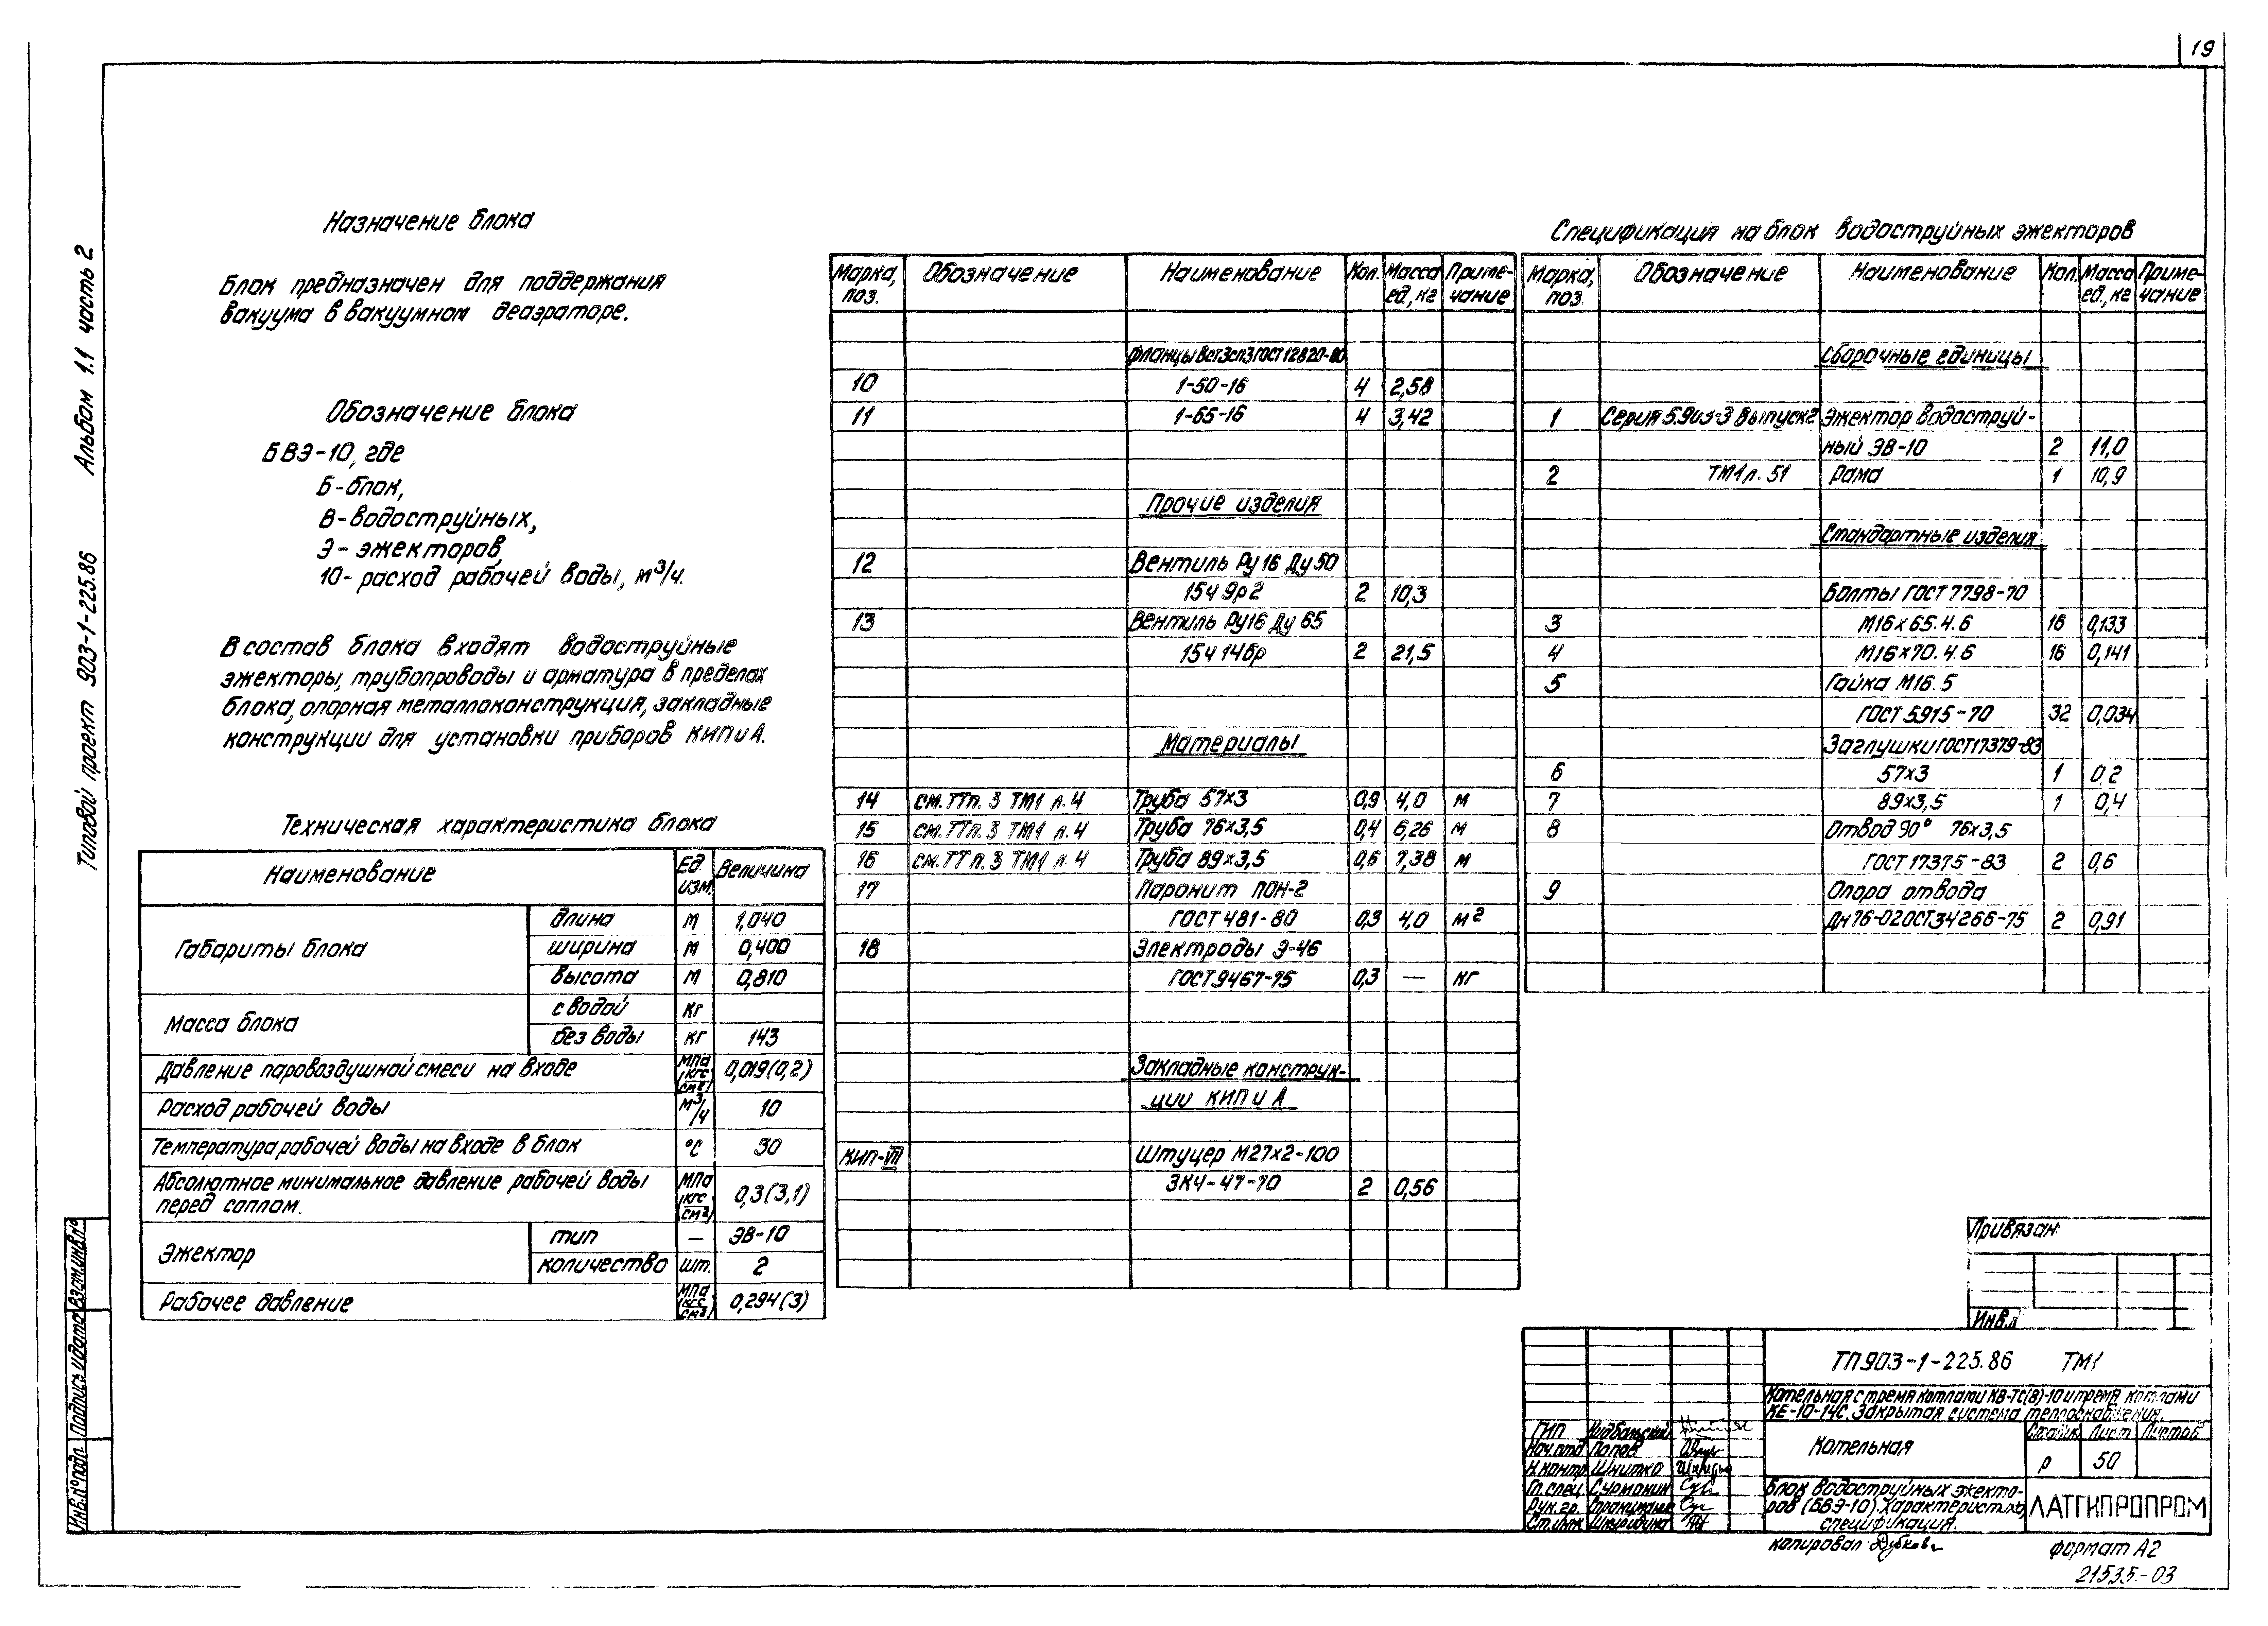 19
Альбом 1.1 часть 2
Типовой проект 903-1-225.86
Назначение блока
Блок предназначен для поддержания
вакуума в вакуумном деаэраторе.
Обозначение блока
БВЭ-10, где
Б-блок,
В-водоструйных,
Э- эжекторов,
10- расход рабочей воды, м³/ч.
В состав блока входят водоструйные
эжекторы, трубопроводы и арматура в пределах
блока, опорная металлоконструкция, закладные
конструкции для установки приборов КИП и А.
Техническая характеристика блока
Наименование Ед. изм. Величина
Габариты блока длина м 1,040
ширина м 0,400
высота м 0,810
Масса блока с водой кг
без воды кг 143
Давление паровоздушной смеси на входе МПа (кгс/см²) 0,019(0,2)
Расход рабочей воды м³/ч 10
Температура рабочей воды на входе в блок °С 30
Абсолютное минимальное давление рабочей воды
перед соплом. МПа (кгс/см²) 0,3(3,1)
Эжектор тип — ЭВ-10
количество шт. 2
Рабочее давление МПа (кгс/см²) 0,294(3)
Марка, поз. Обозначение Наименование Кол. Масса ед., кг Примечание
Фланцы Вст3сп3 ГОСТ 12820-80
10 1-50-16 4 2,58
11 1-65-16 4 3,42
Прочие изделия
12 Вентиль Ру16 Ду50
15ч 9р2 2 10,3
13 Вентиль Ру16 Ду 65
15ч 14бр 2 21,5
Материалы
14 см. ТТп. 3 ТМ1 л. 4 Труба 57х3 0,9 4,0 м
15 см. ТТп. 3 ТМ1 л. 4 Труба 76х3,5 0,4 6,26 м
16 см. ТТп. 3 ТМ1 л. 4 Труба 89х3,5 0,6 7,38 м
17 Паронит ПОН-2
ГОСТ 481-80 0,3 4,0 м²
18 Электроды Э-46
ГОСТ 9467-75 0,3 — кг
Закладные конструк-
ции КИП и А
КИП-VII Штуцер М27х2-100
ЗК4-47-70 2 0,56
Спецификация на блок водоструйных эжекторов
Марка, поз. Обозначение Наименование Кол. Масса ед., кг Примечание
Сборочные единицы
1 Серия 5.903-3 Выпуск 2 Эжектор водоструй-
ный ЭВ-10 2 11,0
2 ТМ1 л. 51 Рама 1 10,9
Стандартные изделия
Болты ГОСТ 7798-70
3 М16х65.4.6 16 0,133
4 М16х70.4.6 16 0,141
5 Гайка М16.5
ГОСТ 5915-70 32 0,034
Заглушки ГОСТ 17379-83
6 57х3 1 0,2
7 89х3,5 1 0,4
8 Отвод 90° 76х3,5
ГОСТ 17375-83 2 0,6
9 Опора отвода
Дн 76-02 ОСТ 34266-75 2 0,91
Привязан:
Инв.
ТП 903-1-225.86 ТМ1
Котельная с тремя котлами КВ-ТС(В)-10 и тремя котлами
КЕ-10-14С. Закрытая система теплоснабжения.
Котельная
Стадия Лист Листов
р 50
Блок водоструйных эжекто-
ров (БВЭ-10). Характеристика,
спецификация.
ЛАТГИПРОПРОМ
ГИП
Нач.отд Попов
Н.контр Шнитко
Гл.спец. Сурмонин
Рук.гр.
Ст.инж.
Копировал
формат А2
21535-03
Взаст.инв.№
Подпись и дата
Инв.№ подл.